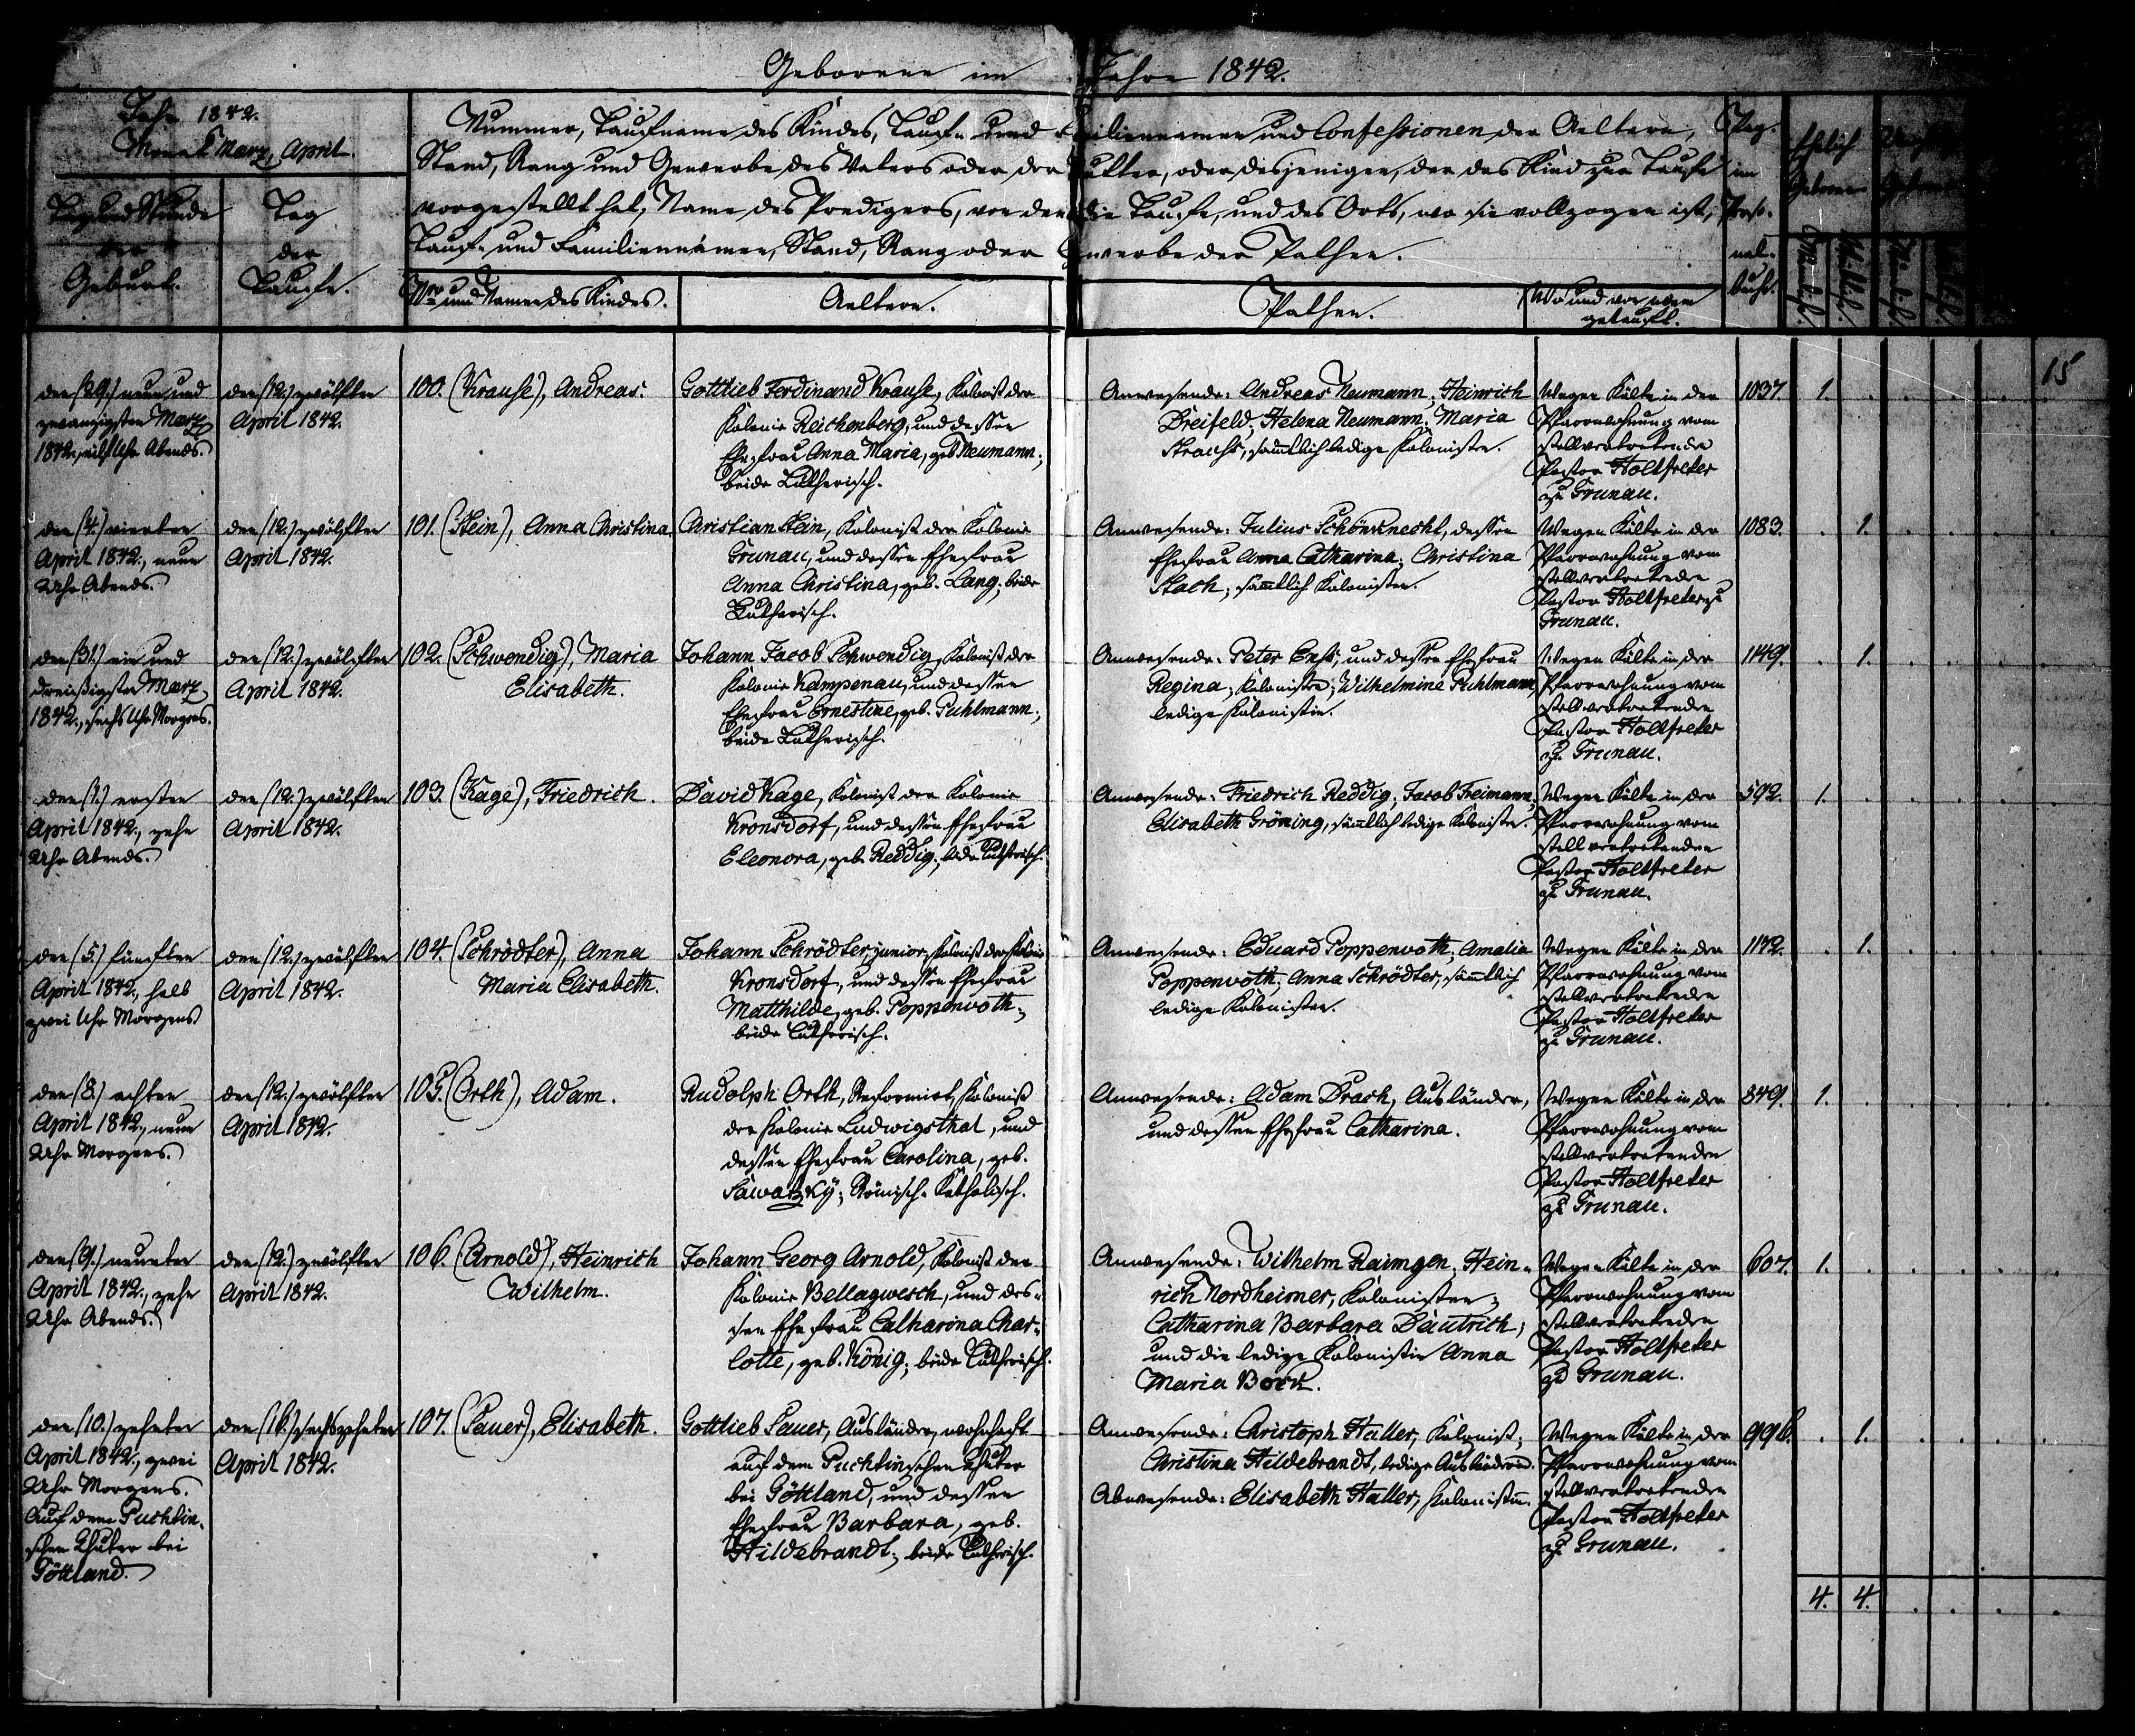 Geborene im Jahre 1842.
Jahr 1842.
Monat Marz, April.
Tag und Stunde
der
Geburt.
Tag
der
Taufe.
Nummer, Taufname des Kindes, Tauf- und Familiennamen und Confessionen der Aeltern,
Stand, Rang und Gewerbe des Vaters oder der Mutter, oder desjenigen, der das Kind zur Taufe
vorgestellt hat, Name des Predigers, von dem die Taufe, und des Orts, wo sie vollzogen ist,
Tauf- und Familiennamen, Stand, Rang oder Gewerbe der Pathen.
Nro und Namen des Kindes.
Aeltern.
Pathen.
Wo und von wem
getauft.
Pag.
im
Perso-
nal-
buche.
Ehelich
Geboren
15
den (29.) neun und
zwanzigsten Marz
1842., eilf Uhr Abends.
den (12.) zwölften
April 1842.
100. (Krause), Andreas.
Gottlieb Ferdinand Krause, Kolonist der
Kolonie Reichenberg, und dessen
Ehefrau Anna Maria, geb. Neumann;
beide Lutherisch.
Anwesende: Andreas Neumann; Heinrich
Dreifeld; Helena Neumann; Maria
Strachs, sämmtlich ledige Kolonisten.
Wegen Kälte in der
Pfarrwohnung vom
stellvertretenden
Pastor Holtfreter
zu Grunau.
1037.
1.
den (4.) vierten
April 1842., neun
Uhr Abends.
den (12.) zwölften
April 1842.
101. (Stein), Anna Christina
Christian Stein, Kolonist der Kolonie
Grunau, und dessen Ehefrau
Anna Christina, geb. Lang; beide
Lutherisch.
Anwesende: Julius Schönknecht, dessen
Ehefrau Anna Catharina; Christina
Stach; sämtlich Kolonisten.
Wegen Kälte in der
Pfarrwohnung vom
stellvertretenden
Pastor Holtfreter zu
Grunau.
1083.
1.
den (31.) ein und
dreißigsten Marz
1842., sechs Uhr Morgens.
den (12.) zwölften
April 1842.
102. (Schwendig), Maria
Elisabeth.
Johann Jacob Schwendig, Kolonist der
Kolonie Kampenau, und dessen
Ehefrau Ernestine, geb. Puhlmann;
beide Lutherisch.
Anwesende: Peter Enß; und dessen Ehefrau
Regina; Kolonisten; Wilhelmine Puhlmann
ledige Kolonistin.
Wegen Kälte in der
Pfarrwohnung vom
stellvertretenden
Pastor Holtfreter
zu Grunau.
1149.
1.
den (1.) ersten
April 1842., zehn
Uhr Abends.
den (12.) zwölften
April 1842.
103. (Kage), Friedrich.
David Kage, Kolonist der Kolonie
Kronsdorf, und dessen Ehefrau
Eleonora, geb. Reddig; beide Lutherisch.
Anwesende: Friedrich Reddig; Jacob Freimann;
Elisabeth Gröning, sämtlich ledige Kolonisten.
Wegen Kälte in der
Pfarrwohnung vom
stellvertretenden
Pastor Holtfreter
zu Grunau.
592.
1.
den (5.) fünften
April 1842., halb
zwei Uhr Morgens
den (12.) zwölften
April 1842.
104. (Schrödter), Anna
Maria Elisabeth.
Johann Schrödter, junior, Kolonist der Kolonie
Kronsdorf, und dessen Ehefrau
Matthilde, geb. Poppenroth;
beide Lutherisch.
Anwesende: Eduard Poppenroth; Amalia
Poppenroth; Anna Schrödter, sämtlich
ledige Kolonisten.
Wegen Kälte in der
Pfarrwohnung vom
stellvertretenden
Pastor Holtfreter
zu Grunau.
1142.
1.
den (8.) achten
April 1842., neun
Uhr Morgens.
den (12.) zwölften
April 1842.
105. (Orth), Adam.
Rudolph Orth, Reformirt, Kolonist
der Kolonie Ludwigsthal, und
dessen Ehefrau Carolina, geb.
Sawatzky; Römisch-Katholisch.
Anwesende: Adam Drach, Ausländer,
und dessen Ehefrau Catharina.
Wegen Kälte in der
Pfarrwohnung vom
stellvertretenden
Pastor Holtfreter
zu Grunau.
849.
1.
den (9.) neunten
April 1842., zehn
Uhr Abends.
den (12.) zwölften
April 1842.
106. (Arnold), Heinrich
Wilhelm.
Johann Georg Arnold, Kolonist der
Kolonie Bellagwesch, und des-
sen Ehefrau Catharina Char-
lotte, geb. König; beide Lutherisch.
Anwesende: Wilhelm Raimgen; Hein-
rich Nordheimer, Kolonisten;
Catharina Barbara Dautrich;
und die ledige Kolonistin Anna
Maria Bock.
Wegen Kälte in der
Pfarrwohnung vom
stellvertretenden
Pastor Holtfreter
zu Grunau.
607.
1.
den (10.) zehnten
April 1842., zwei
Uhr Morgens.
Auf dem Puchtin-
schen Chutor bei
Göttland.
den (16.) sechszehnten
April 1842.
107. (Sauer), Elisabeth.
Gottlieb Sauer, Ausländer, wohnhaft
auf dem Puchtinschen Chutor
bei Göttland, und dessen
Ehefrau Barbara, geb.
Hildebrandt; beide Lutherisch.
Anwesende: Christoph Haller, Kolonist;
Christina Hildebrandt, ledige Ausländerin.
Abwesende: Elisabeth Haller, Kolonistin.
Wegen Kälte in der
Pfarrwohnung vom
stellvertretenden
Pastor Holtfreter
zu Grunau.
996.
1.
4. 4.